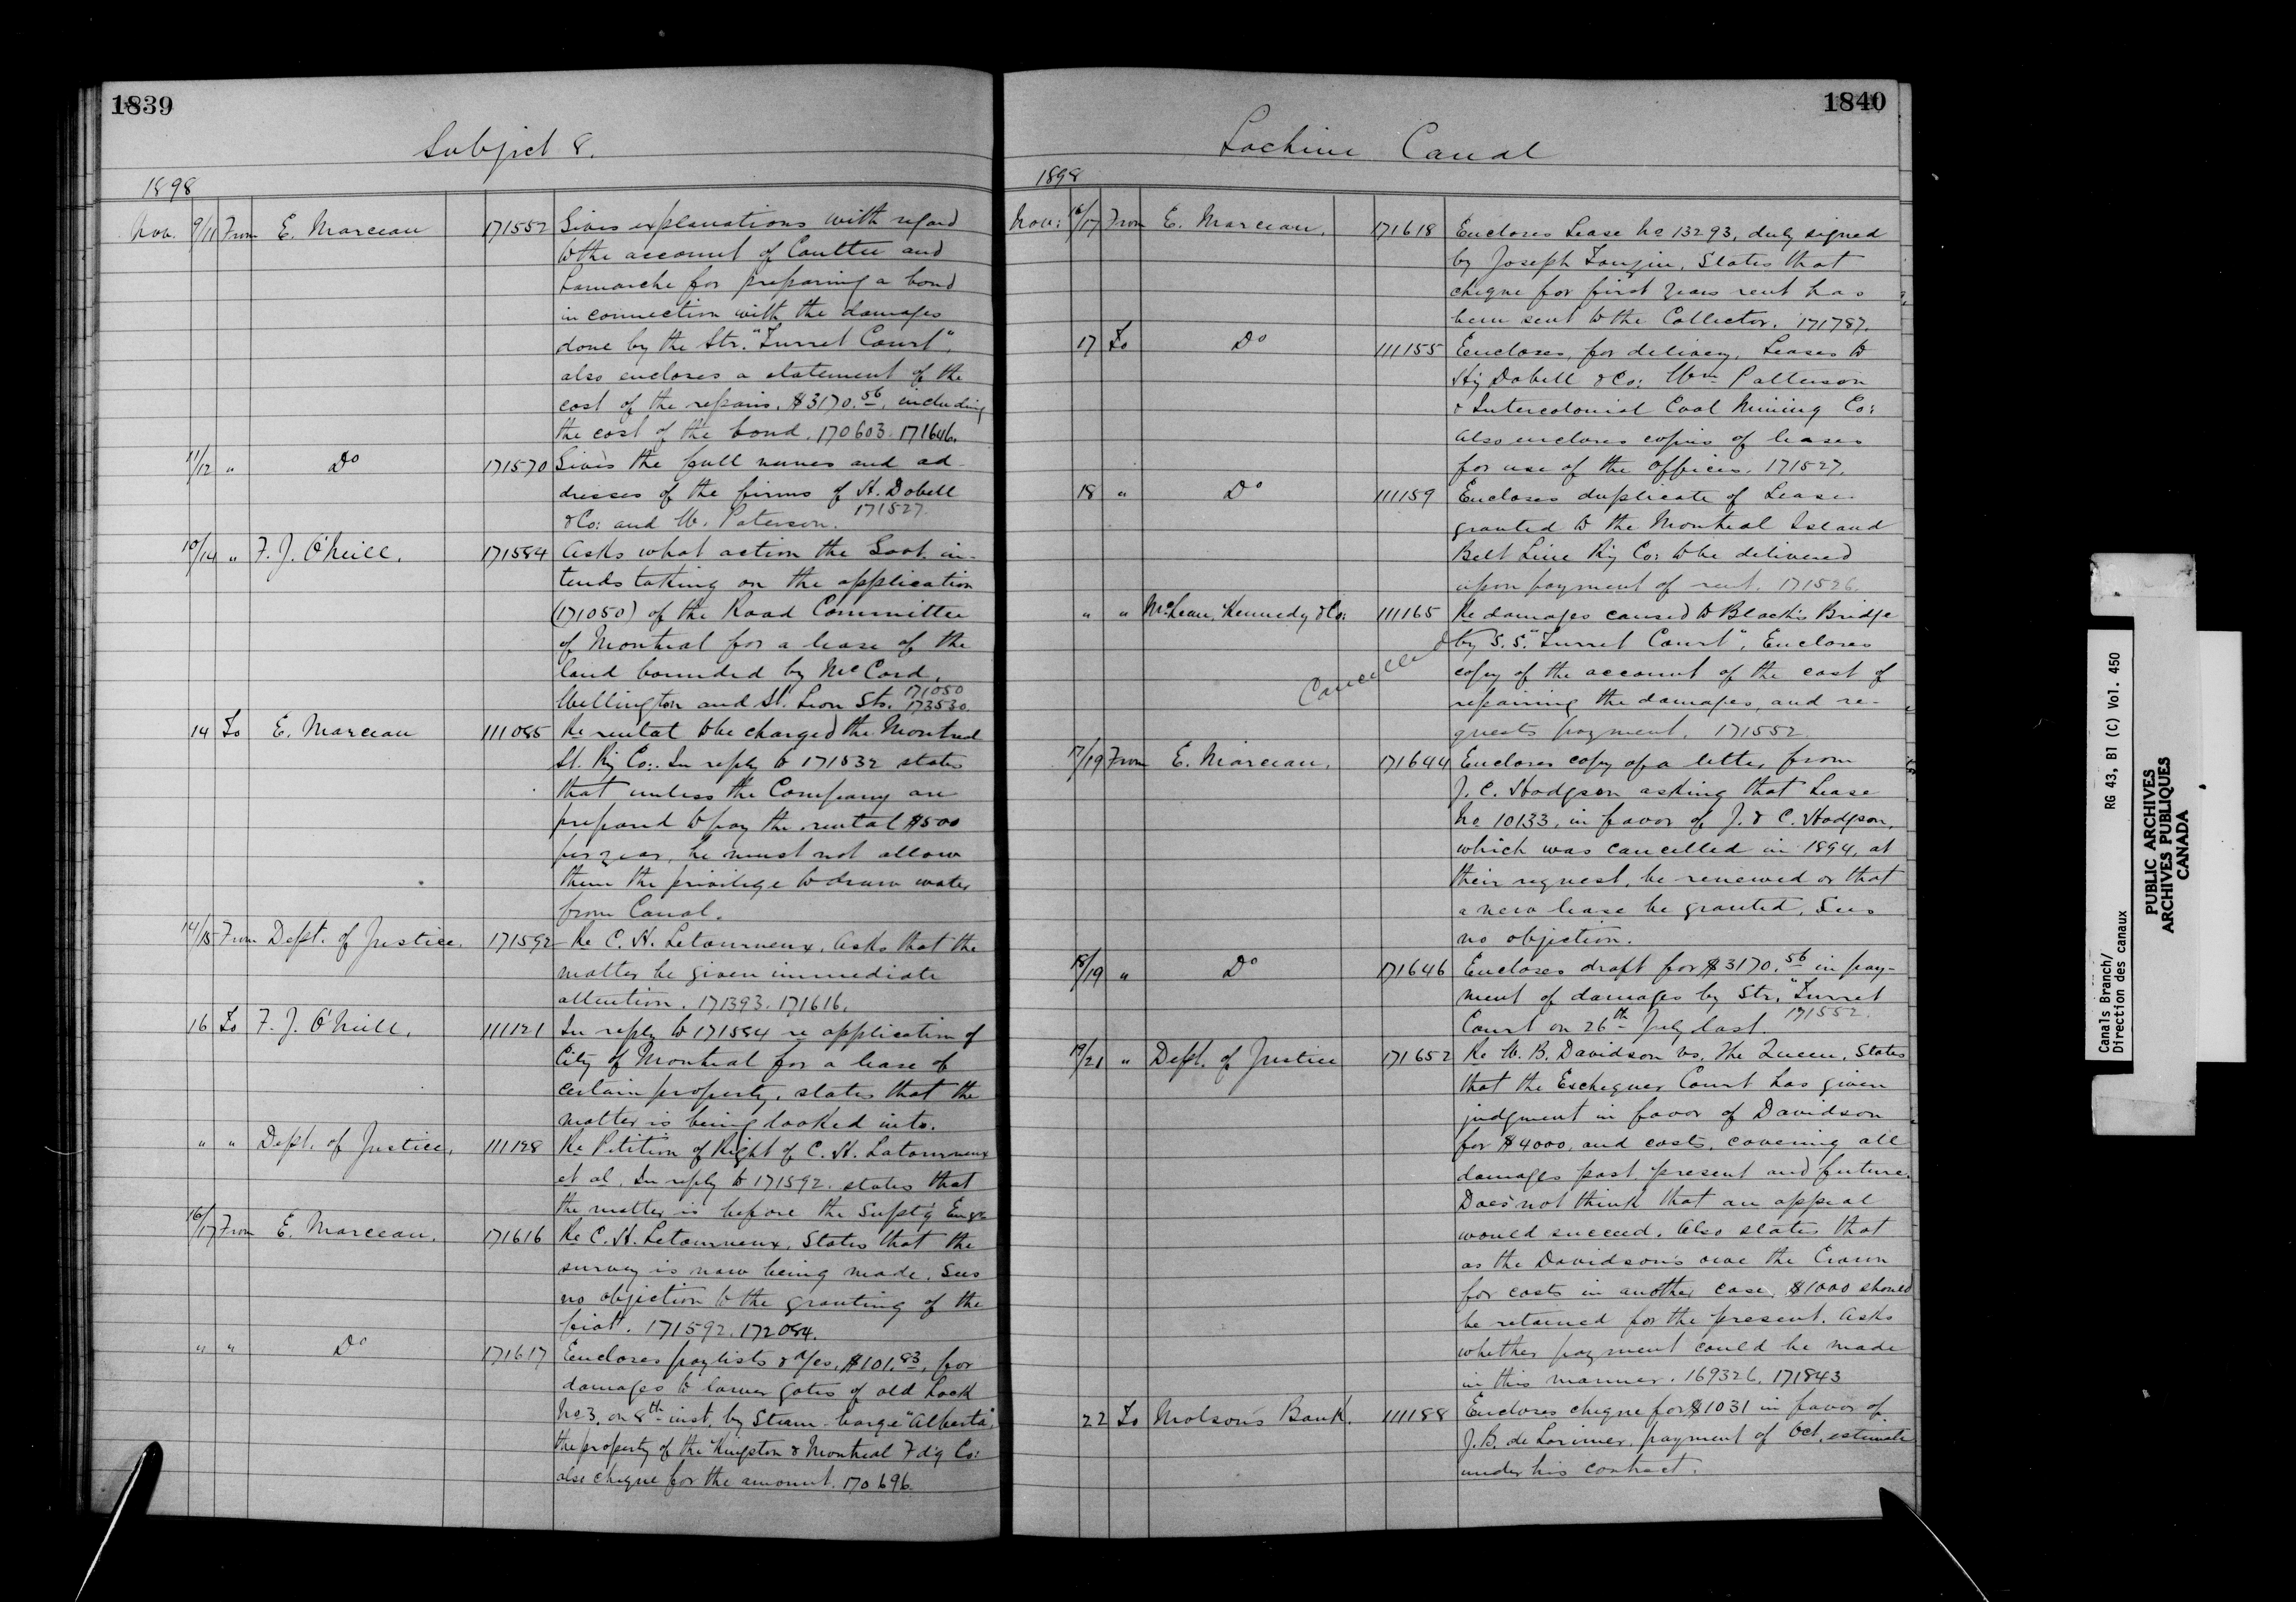 1839
Subject 8.
1898
Nov. 9/11 From E. Marceau 171552 Gives explanations with regard
to the account of Couttee and
Lamarche for preparing a bond
in connection with the damages
done by the Str. "Turret Court",
also encloses a statement of the
cost of the repairs. $3170.56, including
the cost of the bond. 170603. 171646.
11/12 " Do 171570 Gives the full names and ad-
dresses of the firms of H. Dobell
& Co: and W. Paterson. 171527.
10/14 " F. J. O'Neill. 171584 Asks what action the Govt. in-
tends taking on the application
(171050) of the Road Committee
of Montreal for a lease of the
land bounded by McCord,
Wellington and St. Leon Sts. 171050 173530.
14 To E. Marceau 111085 Re rental to be charged the Montreal
St. Ry Co:. In reply to 171532 states
that unless the Company are
prepared to pay the rental $500
per year, he must not allow
them the privilege to draw water
from Canal.
14/15 From Dept. of Justice. 171592 Re C. H. Letourneux. Asks that the
matter be given immediate
attention. 171393. 171616.
16 To F. J. O'Neill. 111121 In reply to 171584 re application of
City of Montreal for a lease of
certain property, states that the
matter is being looked into.
" " Dept. of Justice. 111128 Re Petition of Right of C. H. Latourneux
et al. In reply to 171592. states that
the matter is before the Supt'g Engr
16/17 From E. Marceau. 171616 Re C. H. Letourneux. States that the
survey is now being made. Sees
no objection to the granting of the
fiat. 171592. 172084.
" " Do 171617 Encloses paylists & a/cs, $101.83, for
damages to lower gates of old Lock
No 3, on 8th inst. by Steam-barge "Alberta",
the property of the Kingston & Montreal Fd'g Co:
also cheque for the amount. 170696.
1840
Lachine Canal
1898
Nov: 16/17 From E. Marceau. 171618 Encloses Lease No 13293, duly signed
by Joseph Tougin. States that
cheque for first years rent has
been sent to the Collector. 171787.
17 To Do 111155 Encloses, for delivery, Leases to
Hy Dobell & Co: Wm Patterson
& Intercolonial Coal Mining Co:
Also encloses copies of leases
for use of the offices. 171527.
18 " Do 111159 Encloses duplicate of Lease
granted to the Montreal Island
Belt Line Ry Co: to be delivered
upon payment of rent. 171526.
" " McLean, Kennedy & Co: 111165 Re damages caused to Black's Bridge
Cancelled
by S.S. "Turret Court". Encloses
copy of the account of the cost of
repairing the damages, and re-
quests payment. 171552.
17/19 From E. Marceau. 171644 Encloses copy of a letter from
J. C. Hodgson asking that Lease
No 10133, in favor of J. & C. Hodgson,
which was cancelled in 1894, at
their request, be renewed or that
a new lease be granted. Sees
no objection.
18/19 " Do 171646 Encloses draft for $3170.56 in pay-
ment of damages by Str. "Turret
Court on 26th July last. 171552.
19/21 " Dept. of Justice 171652 Re W. B. Davidson vs. The Queen. States
that the Exchequer Court has given
judgment in favor of Davidson
for $4000, and costs, covering all
damages past, present and future.
Does not think that an appeal
would succeed. Also states that
as the Davidson's owe the Crown
for costs in another case, $1000 should
be retained for the present. Asks
whether payment could be made
in this manner. 169326. 171843
22 To Molson's Bank. 111188 Encloses cheque for $1031 in favor of
J. B. de Lorimier, payment of Oct. estimate
under his contract.
Canals Branch/
Direction des canaux
RG 43, B1 (C) Vol. 450
PUBLIC ARCHIVES
ARCHIVES PUBLIQUES
CANADA